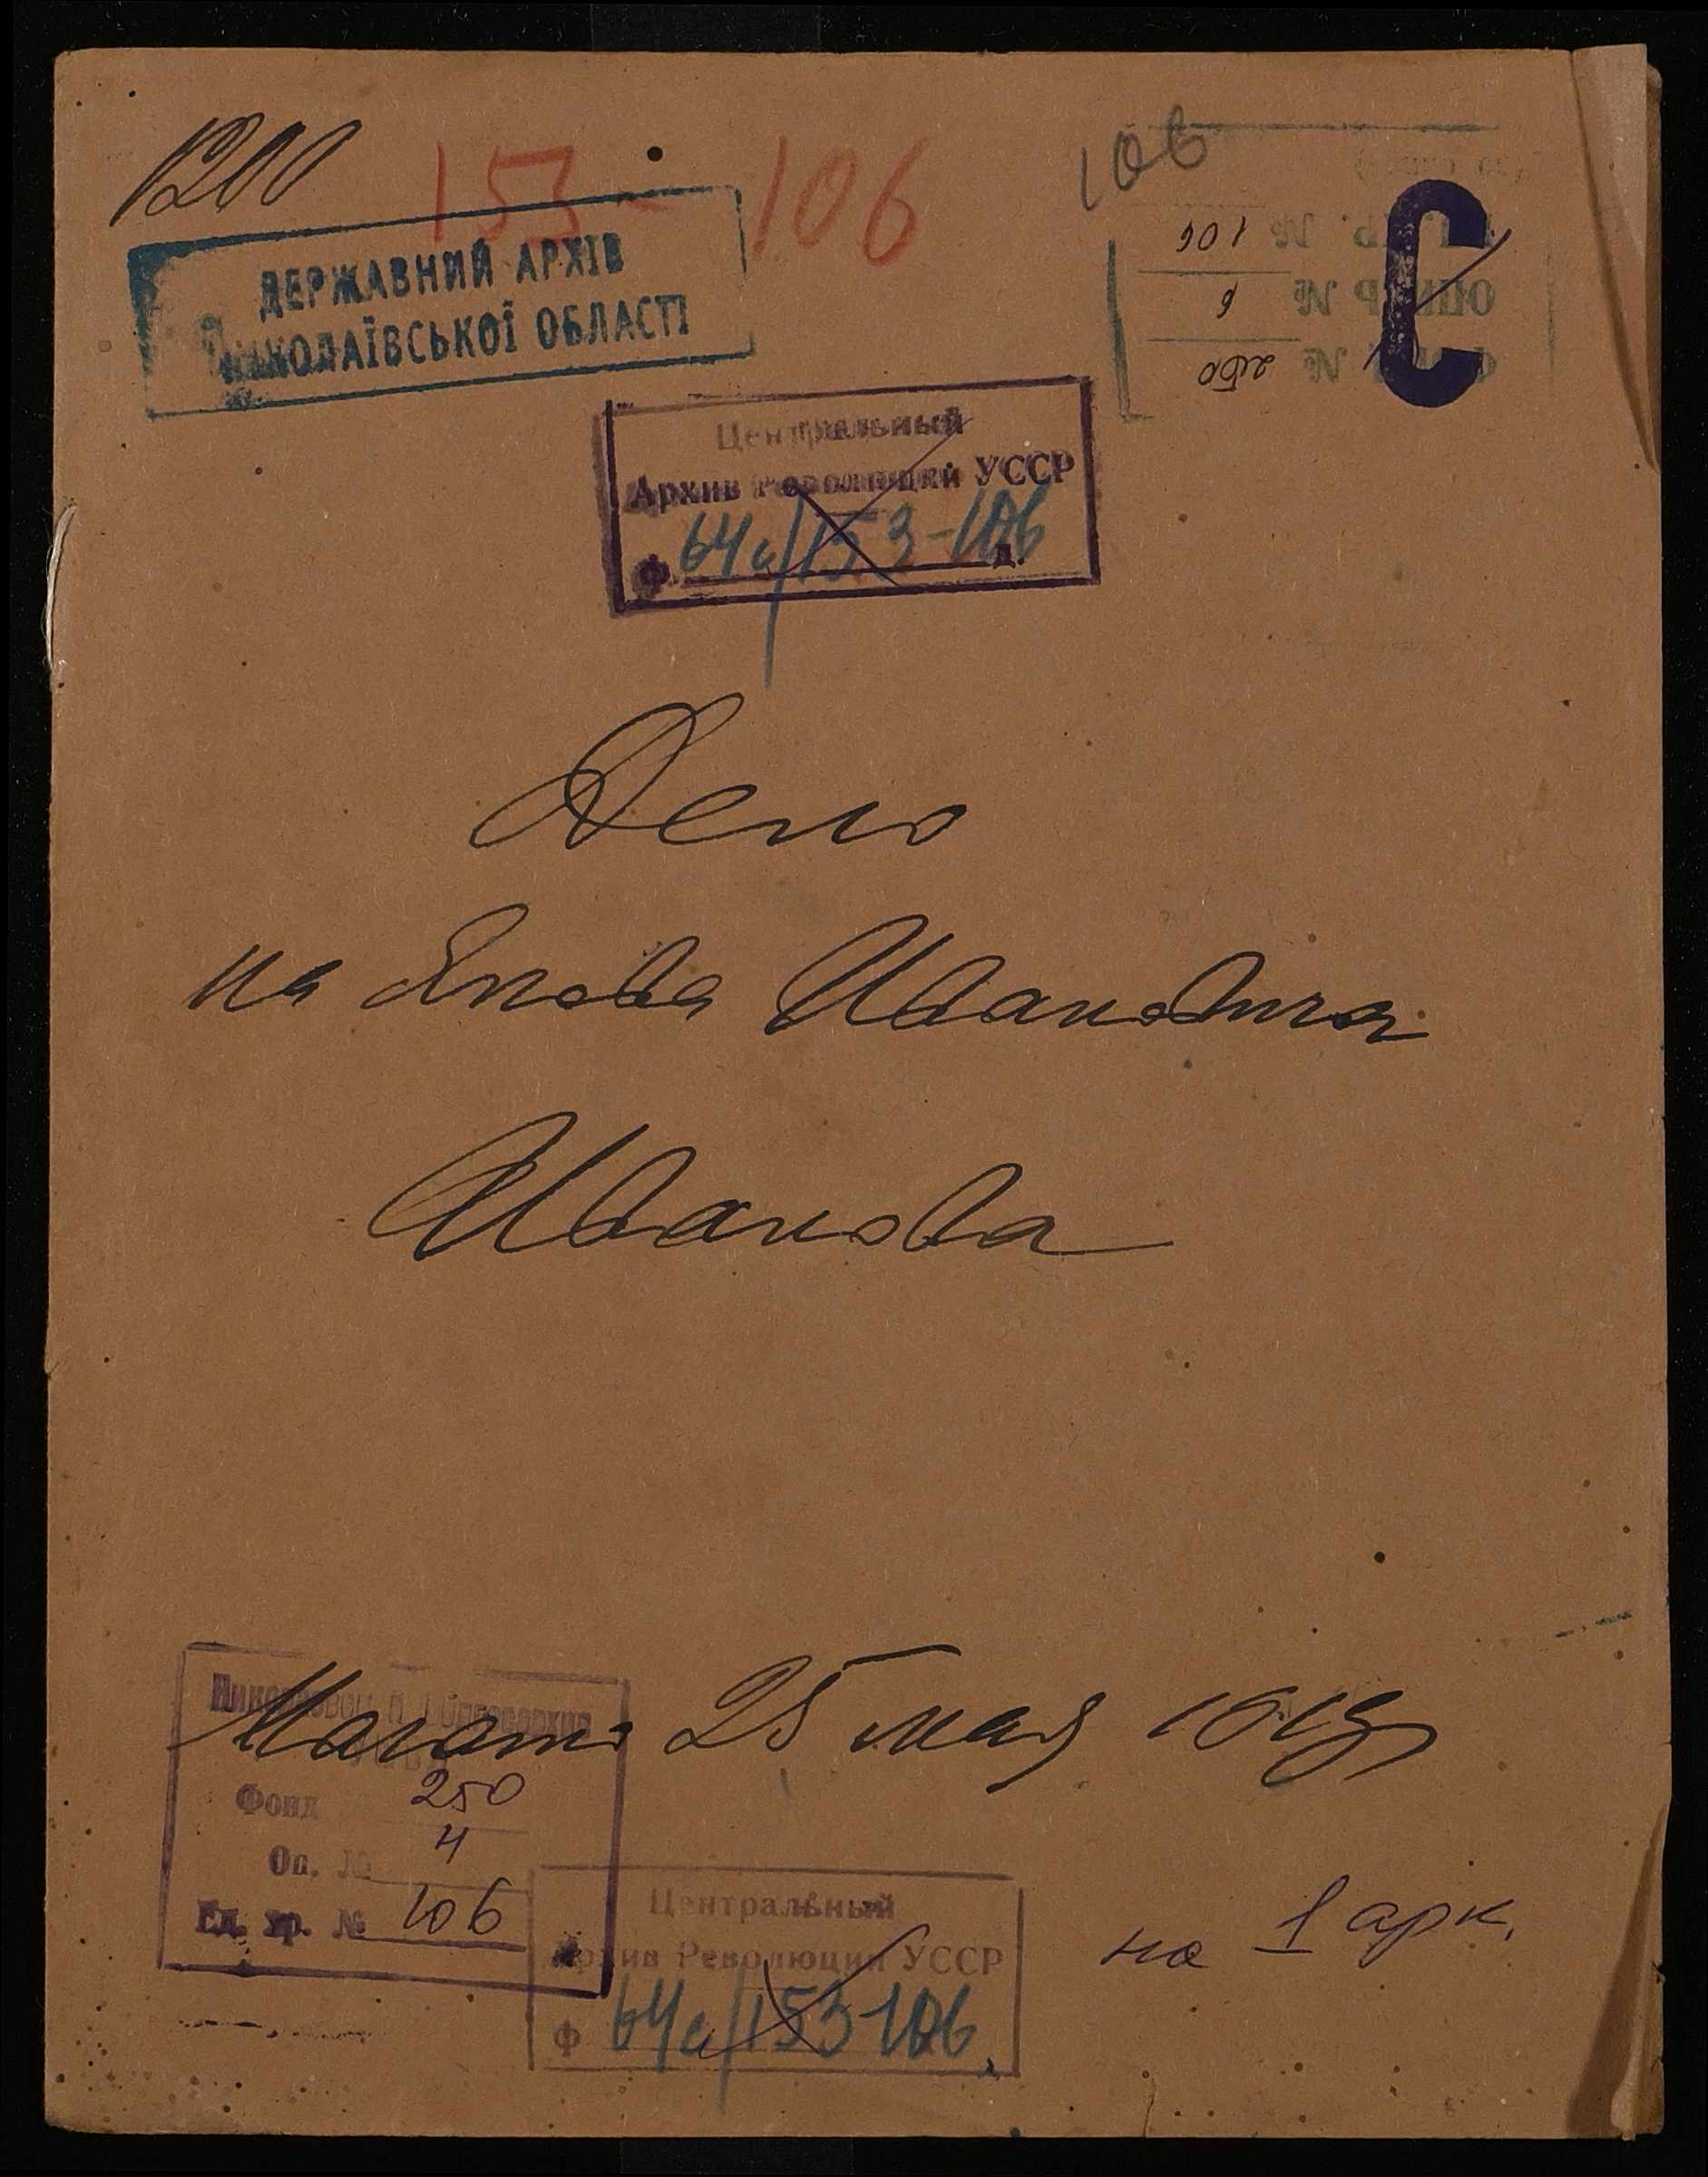 1200
153 - 106
106
ДЕРЖАВНИЙ АРХІВ
МИКОЛАЇВСЬКОЇ ОБЛАСТІ
С
106
250
Центральный
Архив Революции УССР
Ф. 64с/153-106 д.
Дело
на Якова Ивановича
Иванова
25 мая
Фонд 250
Оп. № 4
Ед. хр. № 106
Центральный
Архив Революции УССР
Ф 64с/153-106
на 1 арк.